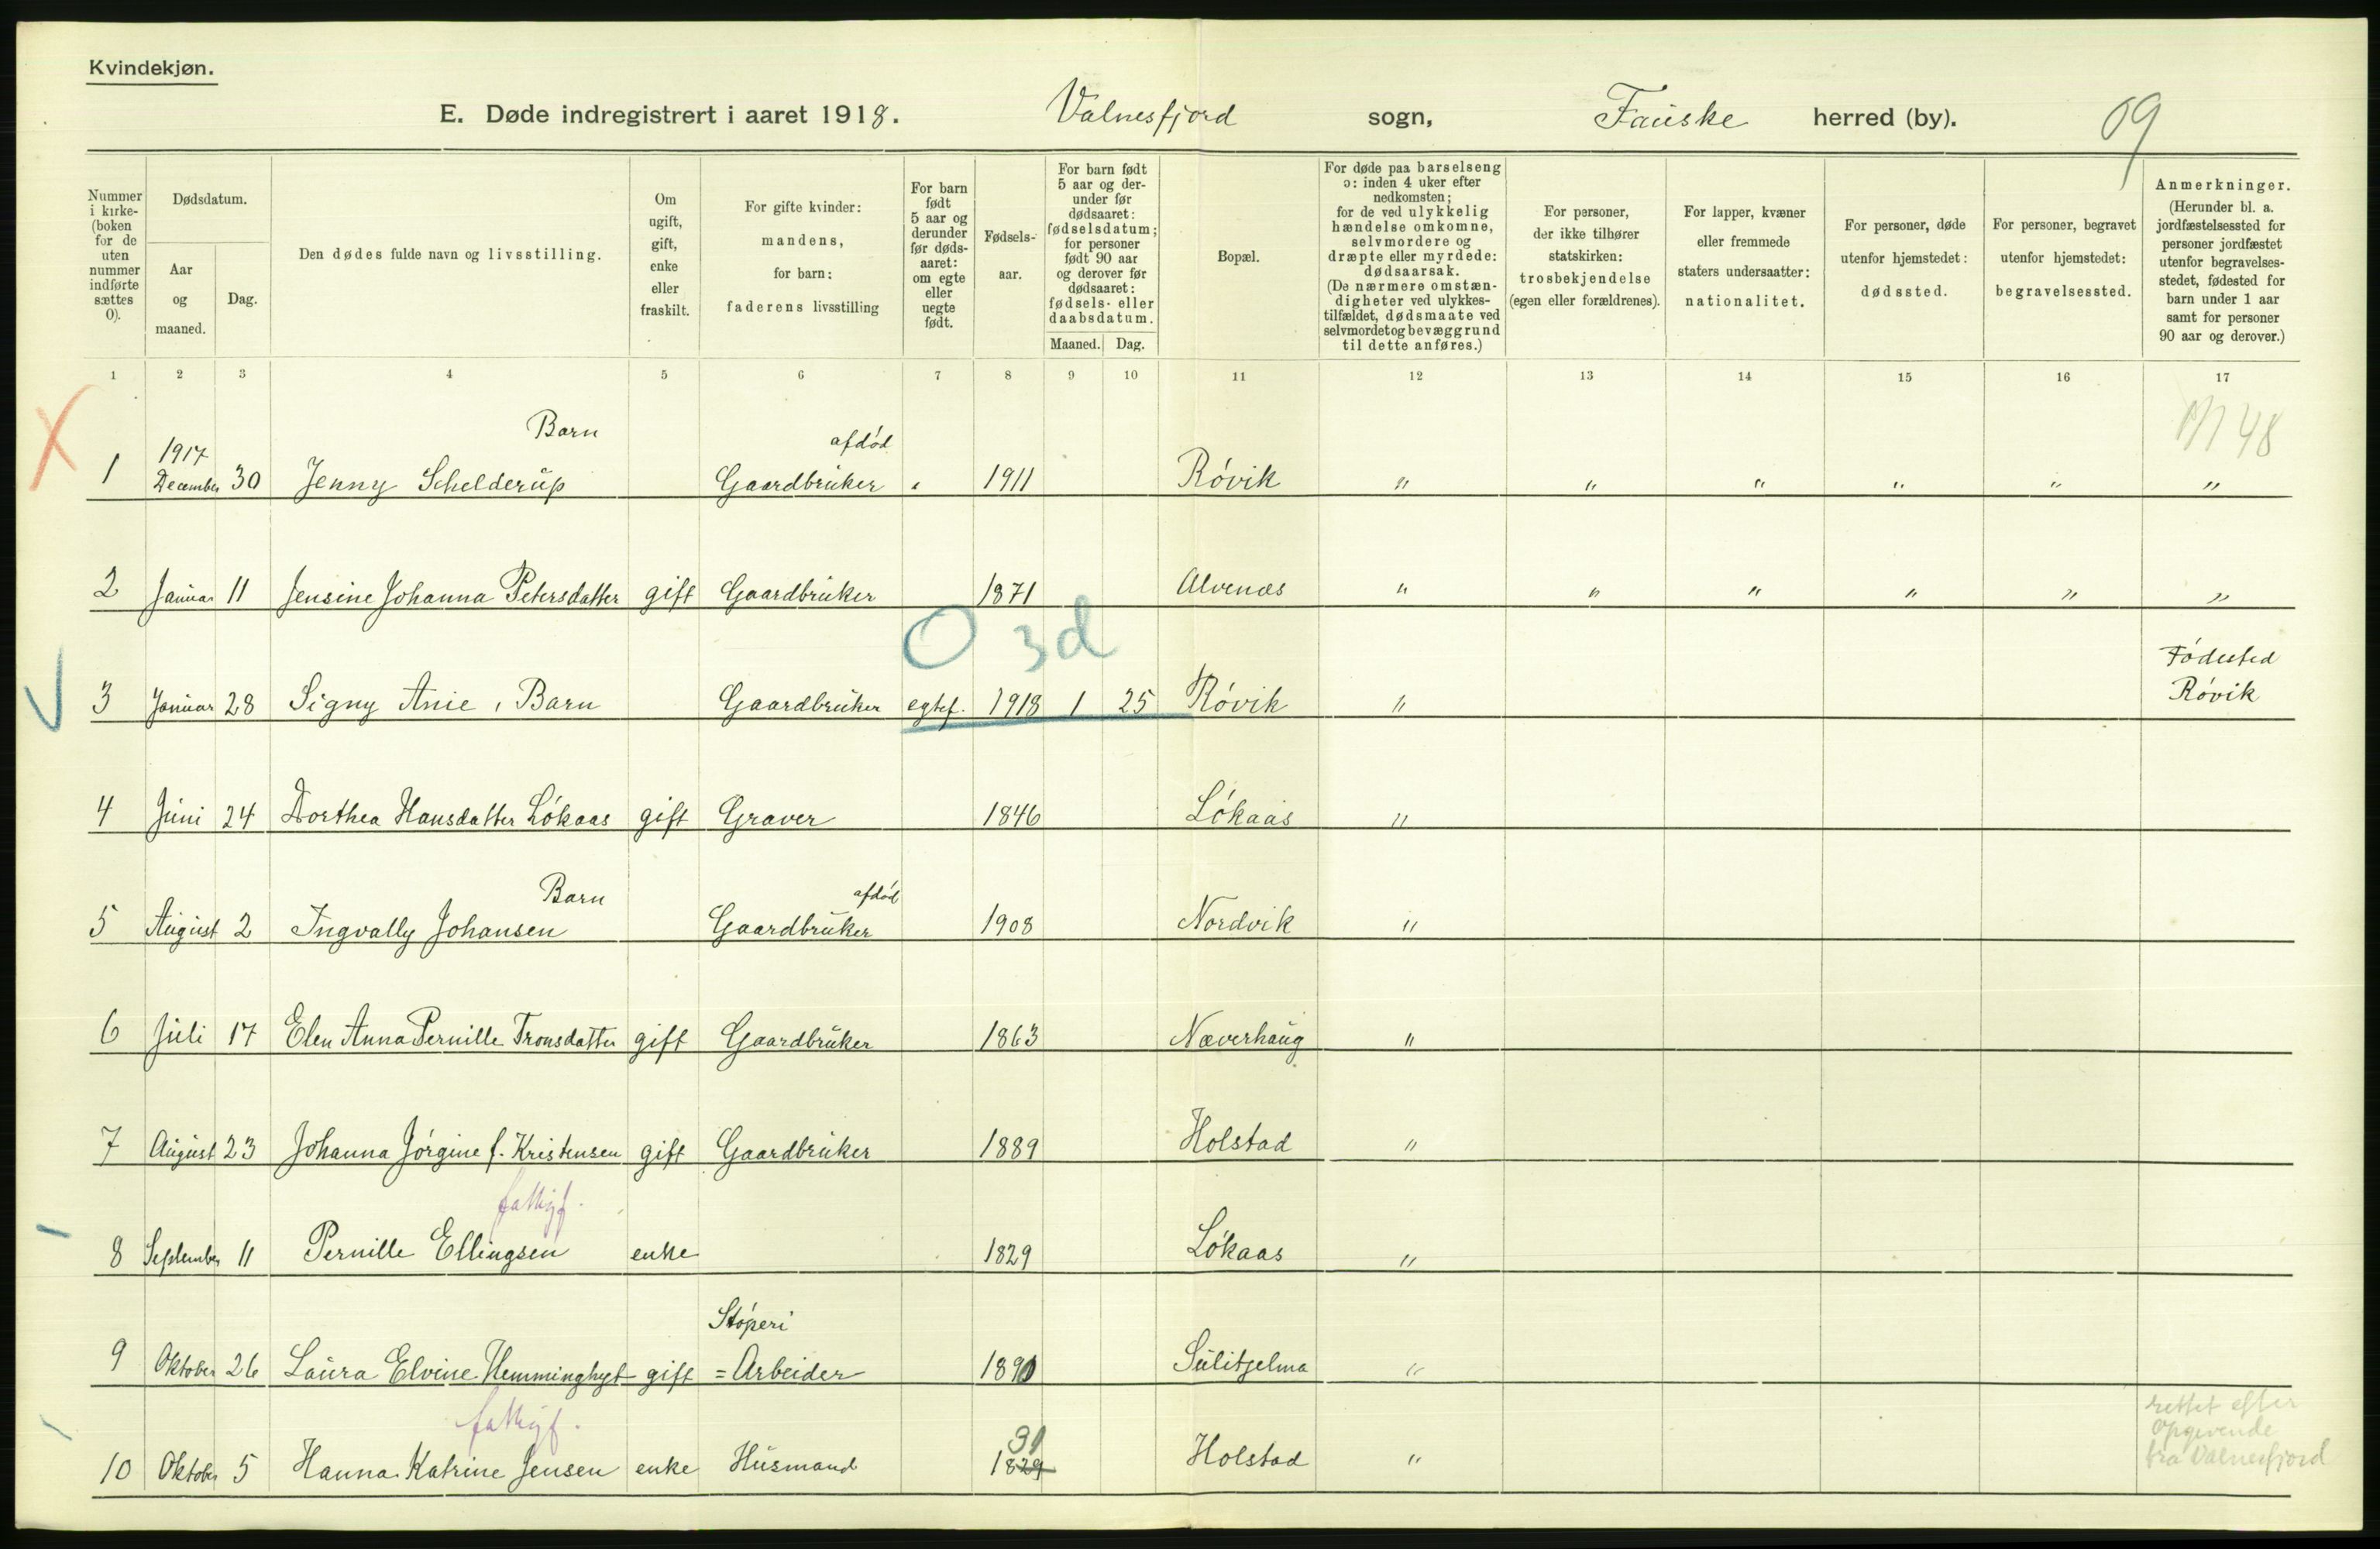 Kvindekjøn.
E. Døde indregistrert i aaret 1918. Valnesfjord sogn, Fauske herred (by). 09
Nummer i kirke- (boken for de uten nummer indførte sættes 0).
Dødsdatum.
Aar og maaned.
Dag.
Den dødes fulde navn og livsstilling.
Om ugift, gift, enke eller fraskilt.
For gifte kvinder: mandens, for barn: faderens livsstilling
For barn født 5 aar og derunder før døds- aaret: om egte eller uegte født.
Fødsels- aar.
For barn født 5 aar og der- under før dødsaaret: fødselsdatum; for personer født 90 aar og derover før dødsaaret: fødsels- eller daabsdatum.
Maaned. Dag.
Bopæl.
For døde paa barselseng ɔ: inden 4 uker efter nedkomsten; for de ved ulykkelig hændelse omkomne, selvmordere og dræpte eller myrdede: dødsaarsak. (De nærmere omstæn- digheter ved ulykkes- tilfældet, dødsmaate ved selvmord et og bevæggrund til dette anføres.)
For personer, der ikke tilhører statskirken: trosbekjendelse (egen eller forældrenes).
For lapper, kvæner eller fremmede staters undersaatter: nationalitet.
For personer, døde utenfor hjemstedet: dødssted.
For personer, begravet utenfor hjemstedet: begravelsessted.
Anmerkninger. (Herunder bl. a. jordfæstelsessted for personer jordfæstet utenfor begravelses- stedet, fødested for barn under 1 aar samt for personer 90 aar og derover.)
1 2 3 4 5 6 7 8 9 10 11 12 13 14 15 16 17
X Barn afdød 48
1 1917 December 30 Jenny Schelderup Gaardbruker " 1911 Røvik " " " " " "
2 Januar 11 Jensine Johanna Petersdatter gift Gaardbruker 1871 Alvenæs " " " " " "
0 3d
3 Januar 28 Signy Anie, Barn Gaardbruker egtef. 1918 1 25 Røvik " Fødested Røvik
4 Juni 24 Dorthea Hansdatter Løkaas gift Graver 1846 Løkaas "
Barn afdød
5 August 2 Ingvally Johansen Gaardbruker 1908 Nordvik "
6 Juli 17 Elen Anna Pernille Tronsdatter gift Gaardbruker 1863 Næverhaug "
7 August 23 Johanna Jørgine f. Kristensen gift Gaardbruker 1889 Holstad "
fattigf.
8 September 11 Pernille Ellingsen enke 1829 Løkaas "
Støperi
9 Oktober 26 Laura Elvine Hemminghyt gift =Arbeider 1890 Sulitjelma "
fattigf. 31 rettet efter
Opgivende
10 Oktober 5 Hanna Katrine Jensen enke Husmand 1829 Holstad " fra Valnesfjord